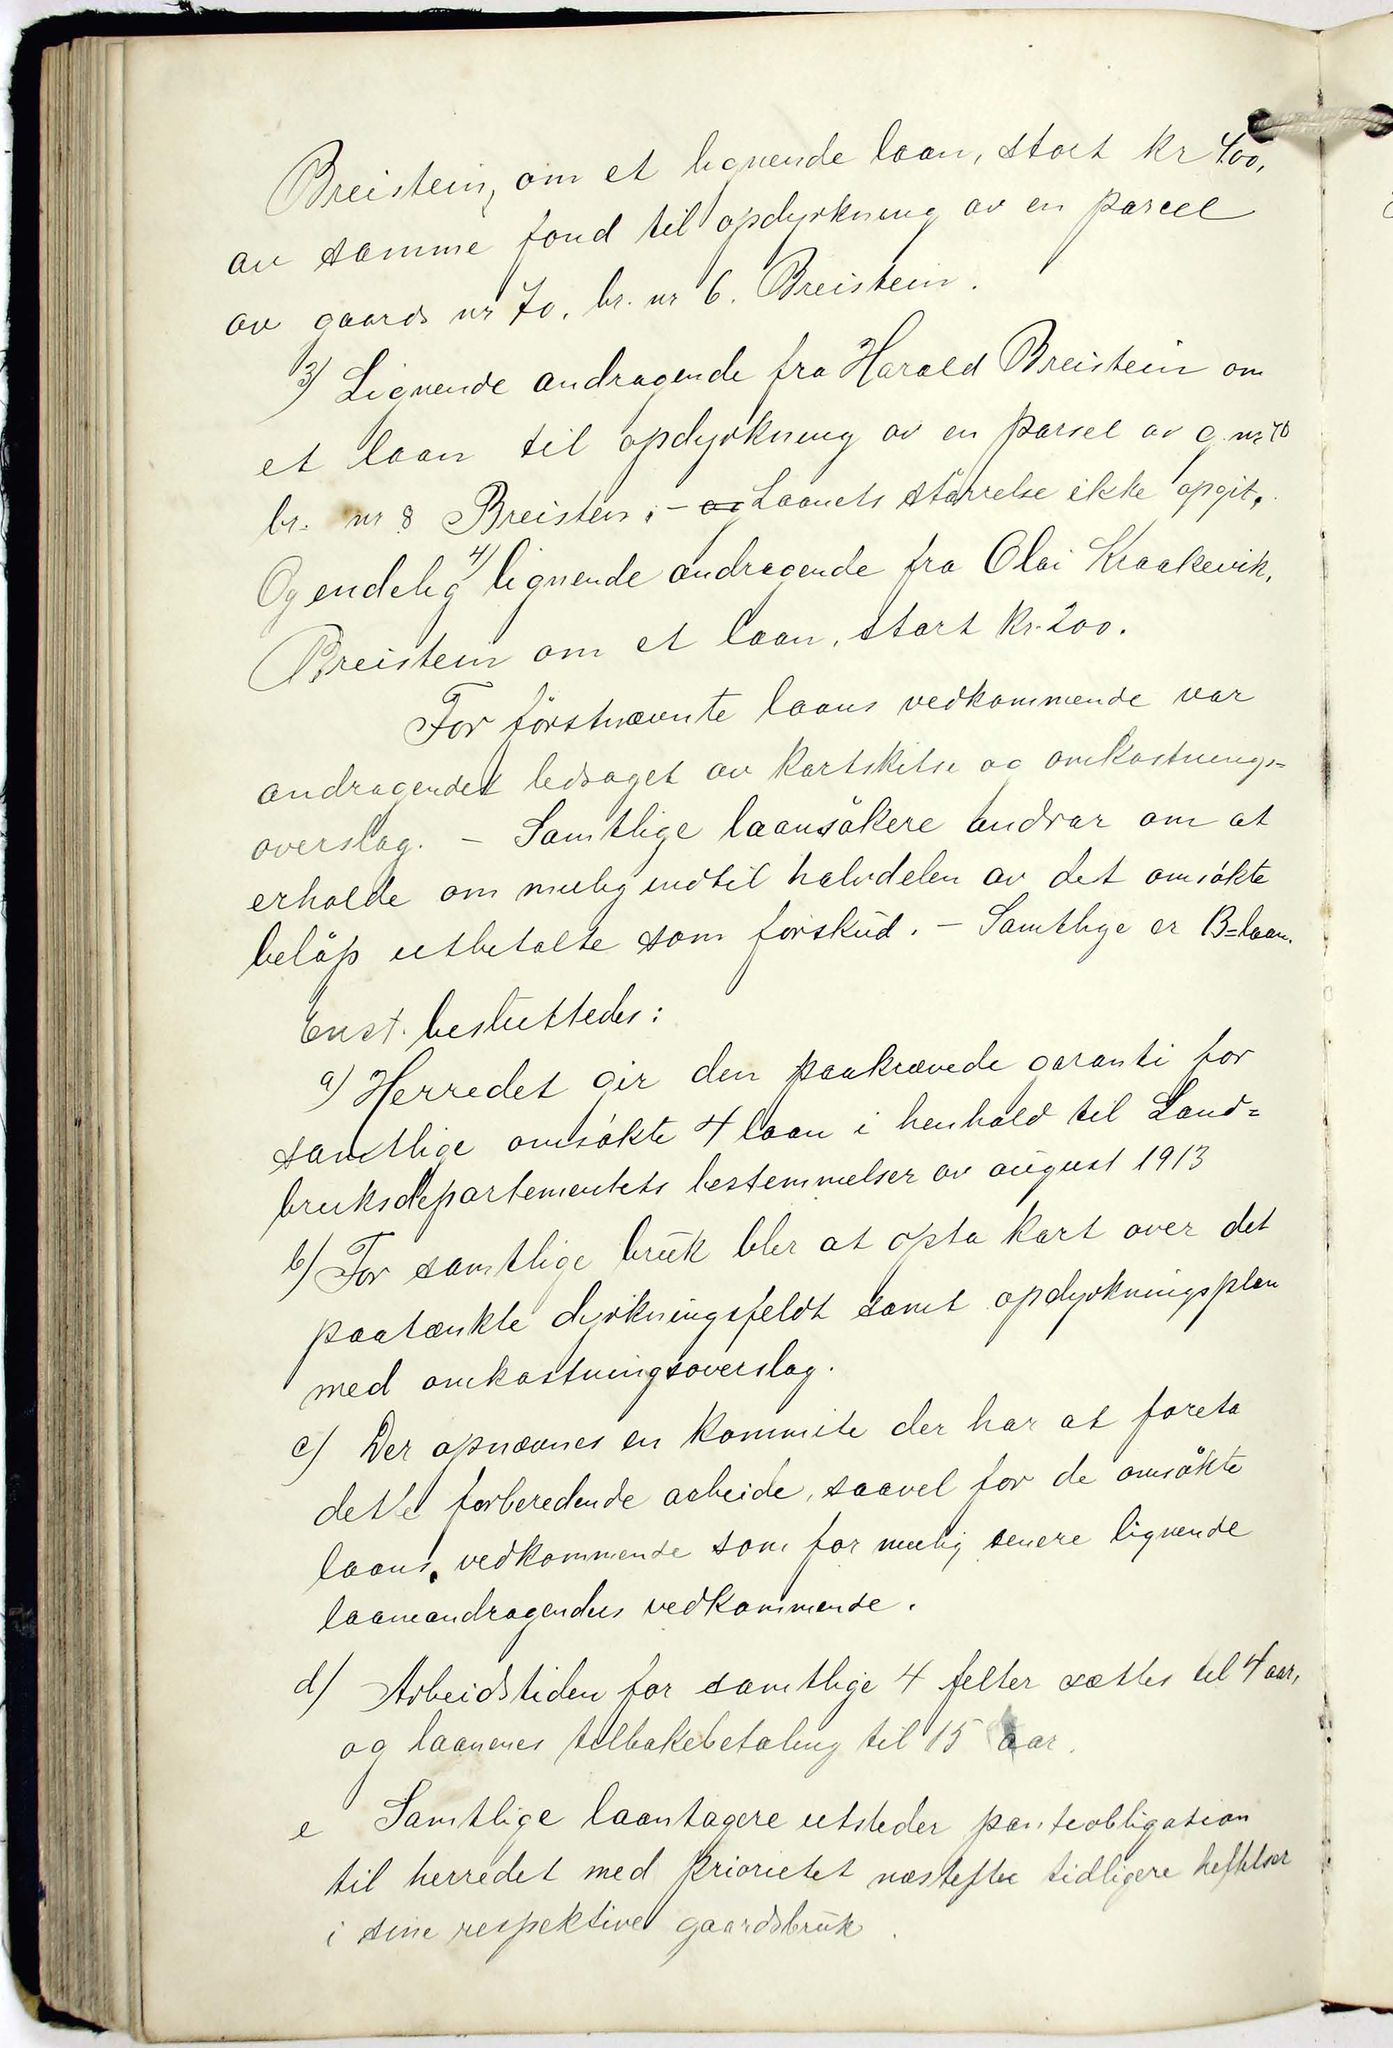 Breistein, om et lignende laan, stort kr 400,
av samme fond til opdyrkning av en parcel
av gaards nr 70. br. nr 6. Breistein.
3) Lignende andragende fra Harald Breistein om
et laan til opdyrkning av en parsel av g. nr 70
br. nr 8 Breisten. - og Laanets størrelse ikke opgit.
Og endelig 4) lignende andragende fra Olai Kraakevik,
Breistein om et laan, stort kr. 200.
For förstnævnte laans vedkommende var
andragendet ledsaget av kartskitse og omkostnings=
overslag. - Samtlige laansökere andrar om at
erholde om mulig indtil halvdelen av det omsökte
belöp utbetalte som forskud. - Samtlige er B=laan.
Enst. besluttedes:
a) Herredet gir den paakrævede garanti for
samtlige omsökte 4 laan i henhold til Land=
bruksdepartementets bestemmelser av august 1913
b) For samtlige bruk blir at opta kart over det
paatænkte dyrkningsfeldt samt opdyrkningsplan
med omkostningsoverslag.
c) Der opnævnes en kommite der har at foreta
dette forberedende arbeide, saavel for de omsökte
laans vedkommende som for mulig senere lignende
laaneandragendes vedkommende.
d) Arbeidstiden for samtlige 4 felter sættes til 4 aar,
og laanenes tilbakebetaling til 15 aar.
e Samtlige laantagere utsteder panteobligation
til herredet med prioritet næstefter tidligere heftelser
i sine respektive gaardsbruk.